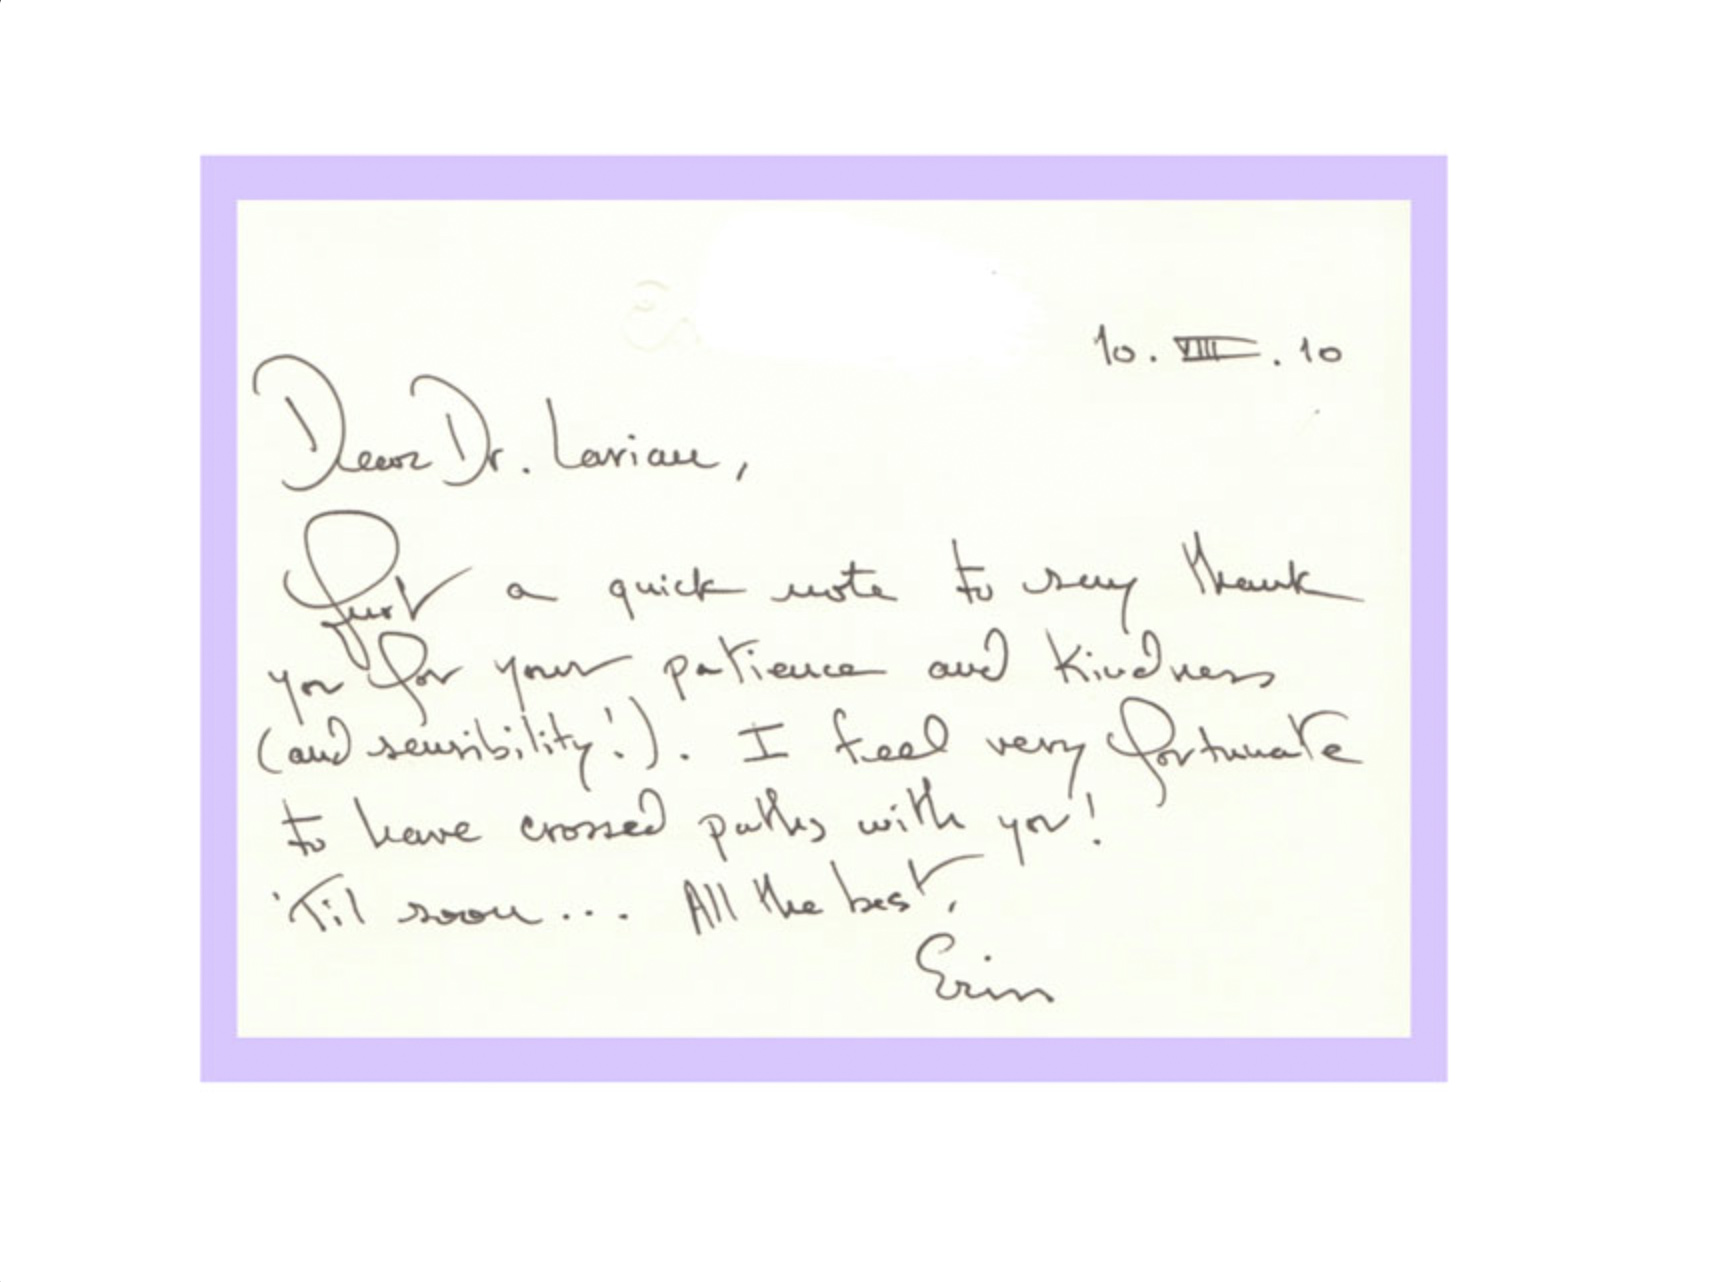 10. VIII. 10
Dear Dr. Larian,
Just a quick note to say thank
you for your patience and kindness
(and sensibility!). I feel very fortunate
to have crossed paths with you!
'Til soon... All the best,
Erin